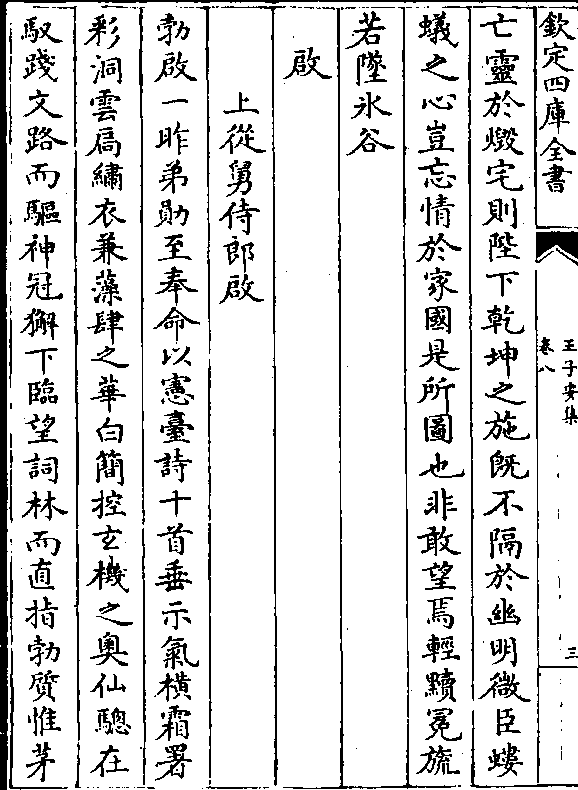 欽定四庫全書
王子安集
卷八
三
亡靈於燬宅則陛下乾坤之施既不隔於幽明微臣螻
蟻之心豈忘情於家國是所圖也非敢望焉輕黷冕旒
若墜氷谷
啟
上從舅侍郎啟
勃啟一昨弟勛至奉命以憲臺詩十首垂示氣横霜署
彩洞雲扃繡衣兼藻肆之華白簡控玄機之奥仙驄在
馭踐文路而驅神冠獬下臨望詞林而直指勃質惟茅